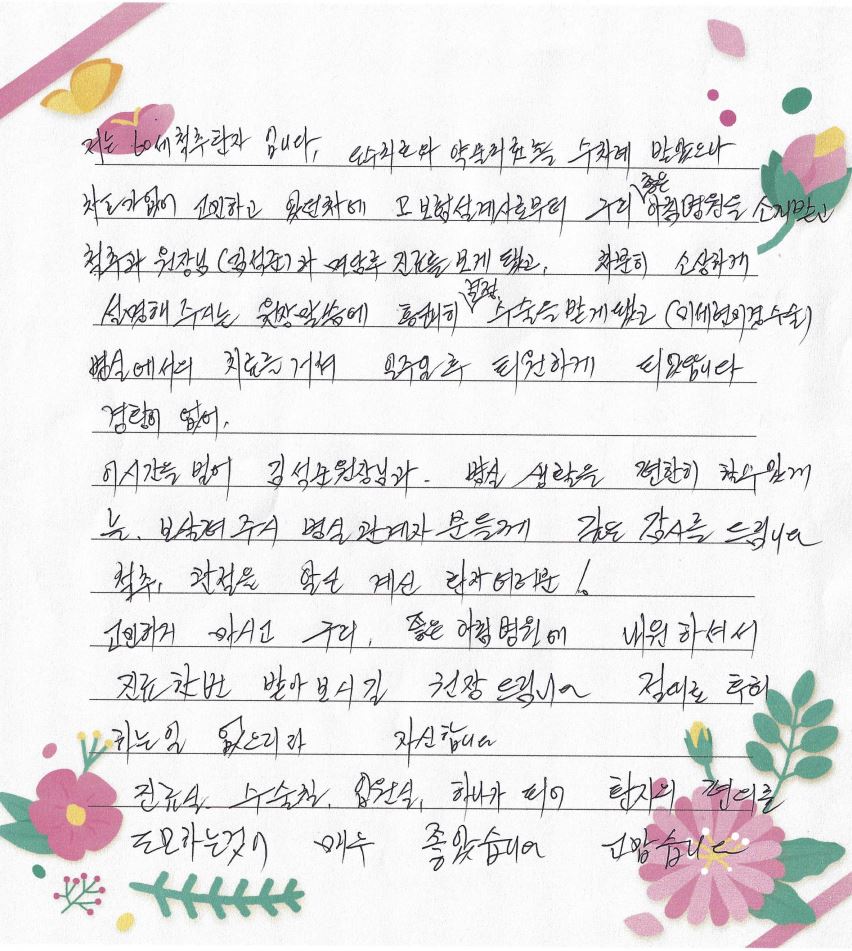 저는 60세 척추환자 입니다, 도수치료와 약물치료를 수차례 받았으나
차도가없어 고민하고 있던차에 모 보험설계사로부터 구리 좋은 아침병원을 소개받고
척추과 원장님(김석준)과 면담후 진료를 보게 됐고, 차분히 소상하게
설명해 주시는 원장말씀에 흔쾌히 결정, 수술을 받게됐고 (미세현미경수술)
병실에서의 치료를거쳐 일주일후 퇴원하게 되었습니다
경황이 없어,
이시간을 빌어 김석준원장님과. 병실 생활을 편한히 할수있게
늘. 보살펴 주신 병실관계자 분들께 감사를 드립니다
척추, 관절을 앓고 계신 환자여러분!
고민하지 마시고 구리, 좋은아침병원에 내원하셔서
진료한번 받아보시길 권장드립니다 절대로 후회
하는일 없으리라 자신합니다
진료실. 수술실, 입원실, 하나가 되어 환자의 편의를
도모하는것이 매우 좋았습니다 고맙습니다